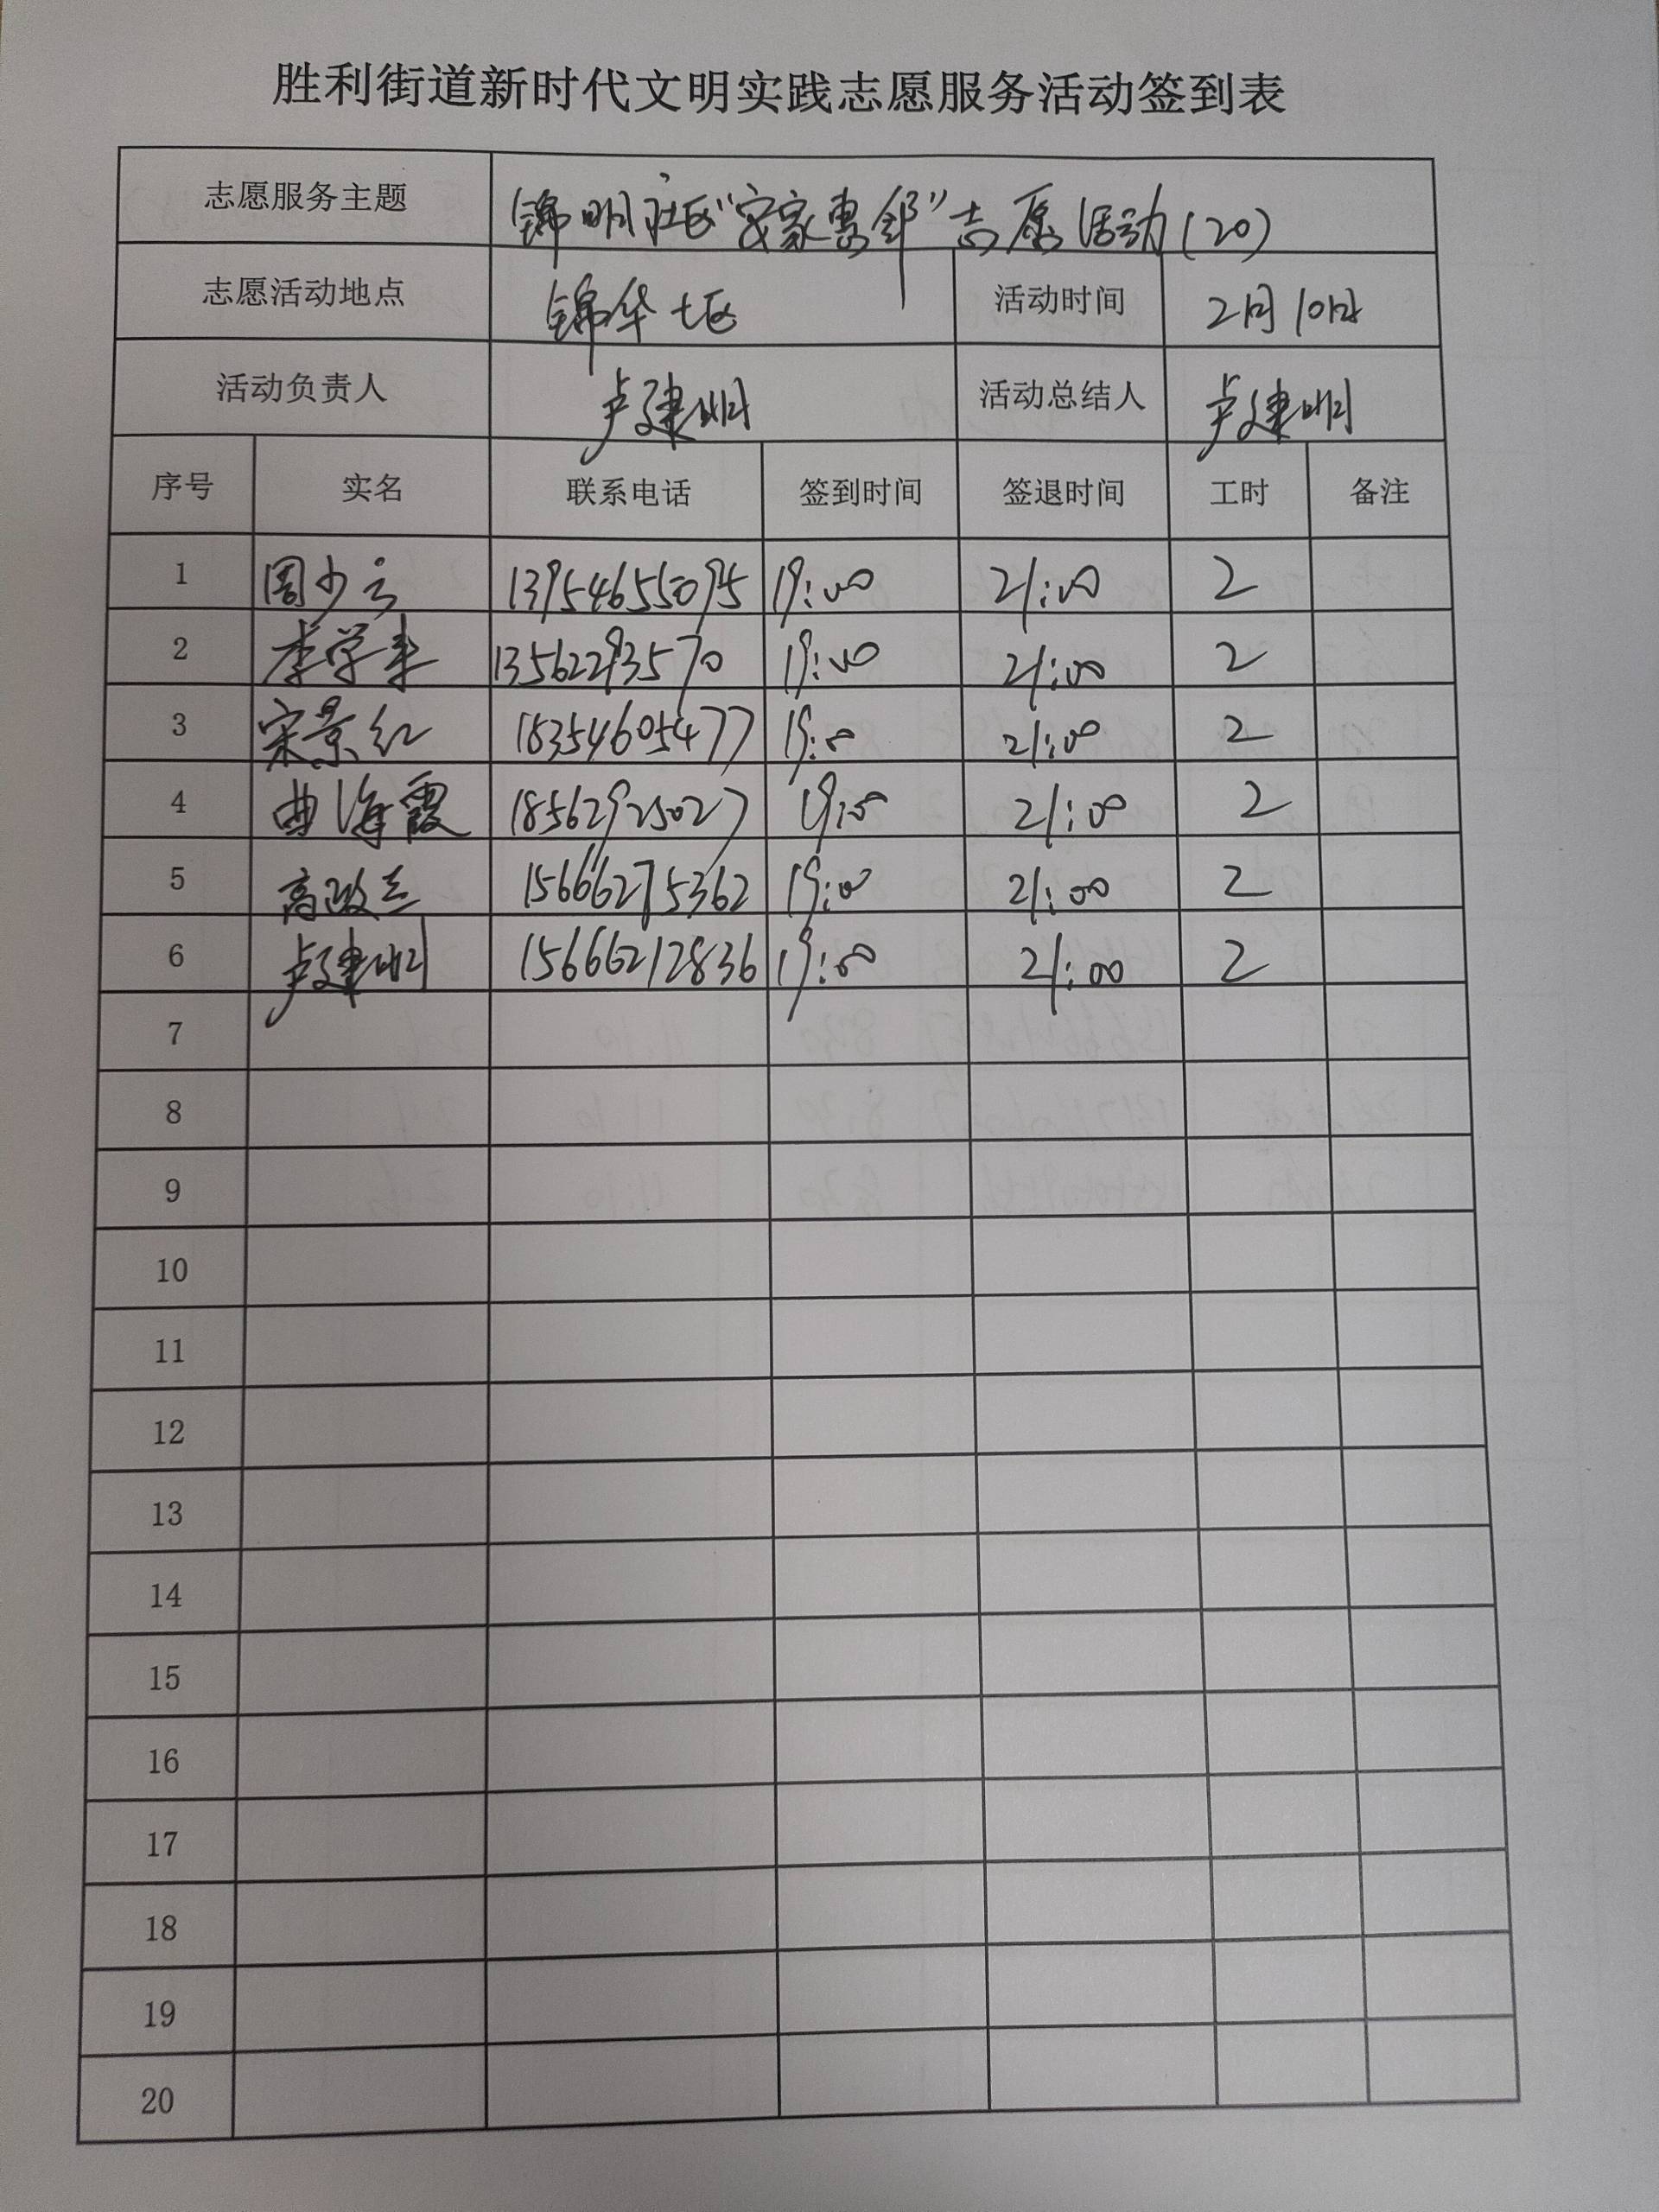 胜利街道新时代文明实践志愿服务活动签到表
志愿服务主题 锦明社区“安家惠邻”志愿活动(20)
志愿活动地点 锦华七区 活动时间 2月10日
活动负责人 卢建明 活动总结人 卢建明
序号 实名 联系电话 签到时间 签退时间 工时 备注
1 周少云 13954655095 19:00 21:00 2
2 李学来 13562293570 19:00 21:00 2
3 宋景红 18354605477 19:00 21:00 2
4 曲海霞 18562925027 19:00 21:00 2
5 高政三 15666275362 19:00 21:00 2
6 卢建明 15666212836 19:00 21:00 2
7
8
9
10
11
12
13
14
15
16
17
18
19
20